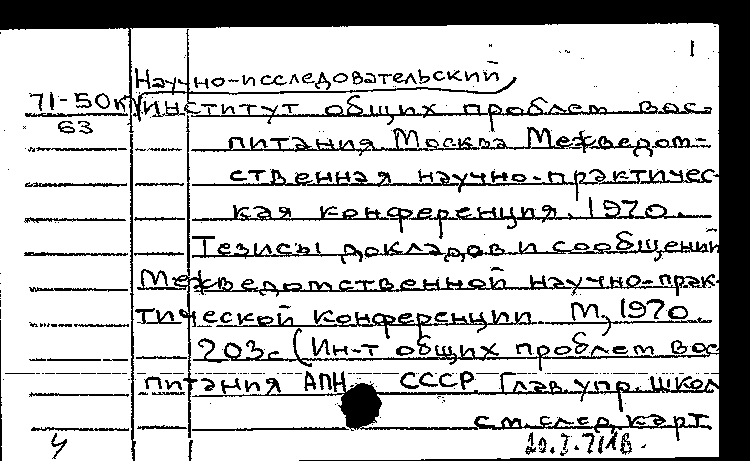 1
Научно-исследовательский
71-50к институт общих проблем вос-
63
питания. Москва. Межведом-
ственная научно-практичес-
кая конференция. 1970.
Тезисы докладов и сообщений
Межведомственной научно-прак-
тической конференции. М, 1970.
203с (Ин-т общих проблем вос
питания АПН СССР Глав. упр. школ
см. след. карт.
ч